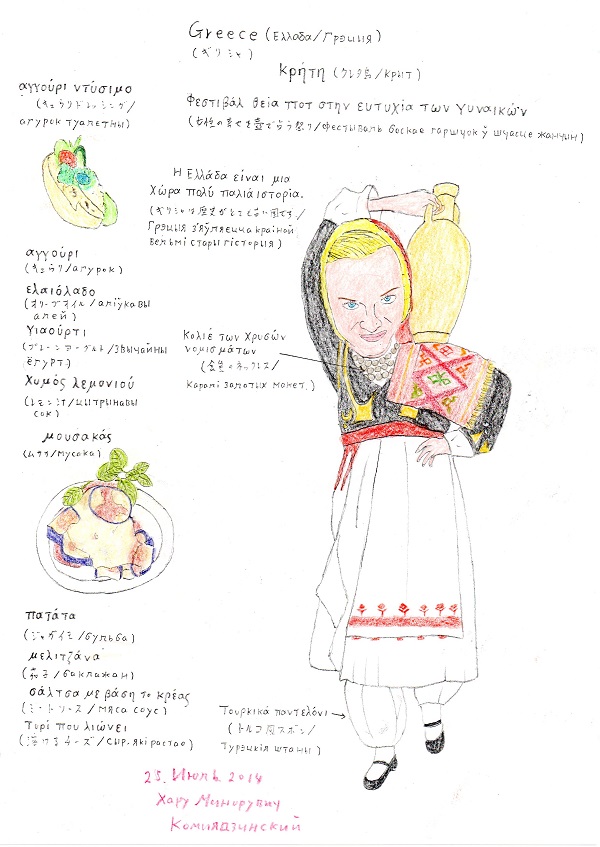 Greece (Ελλάδα/Грэцыя)
(ギリシャ)
Κρήτη (クレタ島/Крыт)
αγγούρι ντύσιμο
(キュウリドレッシング/
агурок туалетны)
Φεστιβάλ θεία ποτ στην ευτυχία των γυναικών
(女性の幸せを壺で占う祭り/Фестываль боскае гаршчок ў шчасце жанчын)
Η Ελλάδα είναι μια
χώρα πολύ παλιά ιστορία.
(ギリシャは歴史がとても古い国です/
Грэцыя з'яўляецца краіной
вельмі стары гісторыя)
αγγούρι
(キュウリ/агурок)
ελαιόλαδο
(オリーブオイル/аліўкавы
алей)
Γιαούρτι
(プレーンヨーグルト/звычайны
ёгурт)
Χυμός λεμονιού
(レモン汁/цытрынавы
сок)
Κολιέ των χρυσών
νομισμάτων
(金貨のネックレス/
Каралі залатых манет)
μουσακάς
(ムサカ/мусака)
πατάτα
(ジャガイモ/бульба)
μελιτζάνα
(茄子/баклажан)
σάλτσα με βάση το κρέας
(ミートソース/мяса соус)
Τυρί που λιώνει
(溶けるチーズ/сыр, які растае)
Τουρκικά παντελόνι
(トルコ風ズボン/
Турэцкія штаны)
25. Июль 2014
Хару Минорувич
Комиядзинский